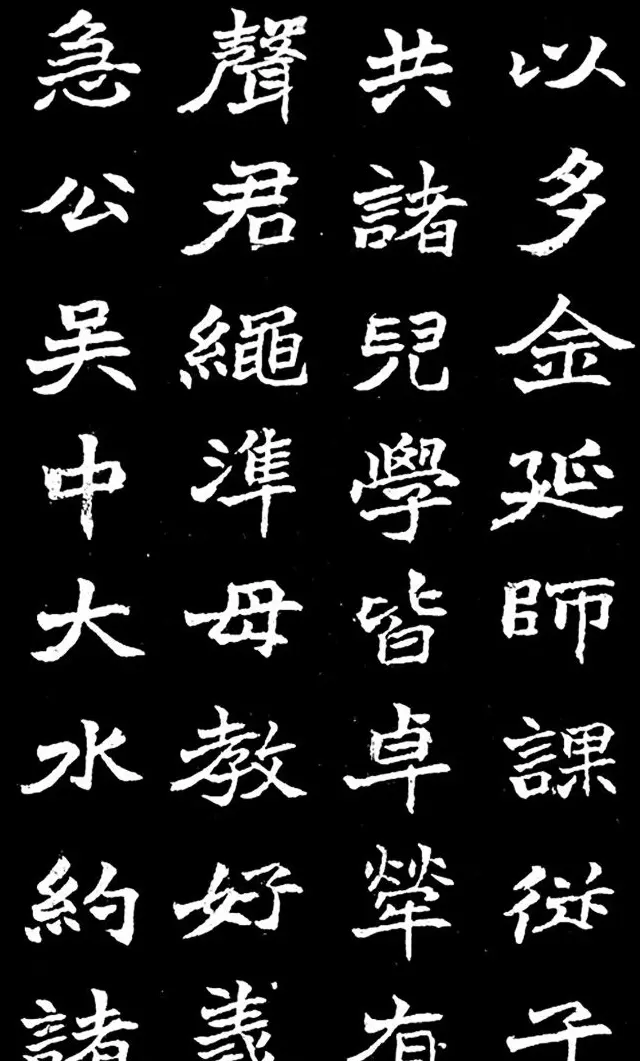 以多金延師課従子
共諸兒學皆卓犖有
聲君繩準母教好義
急公吳中大水約諸